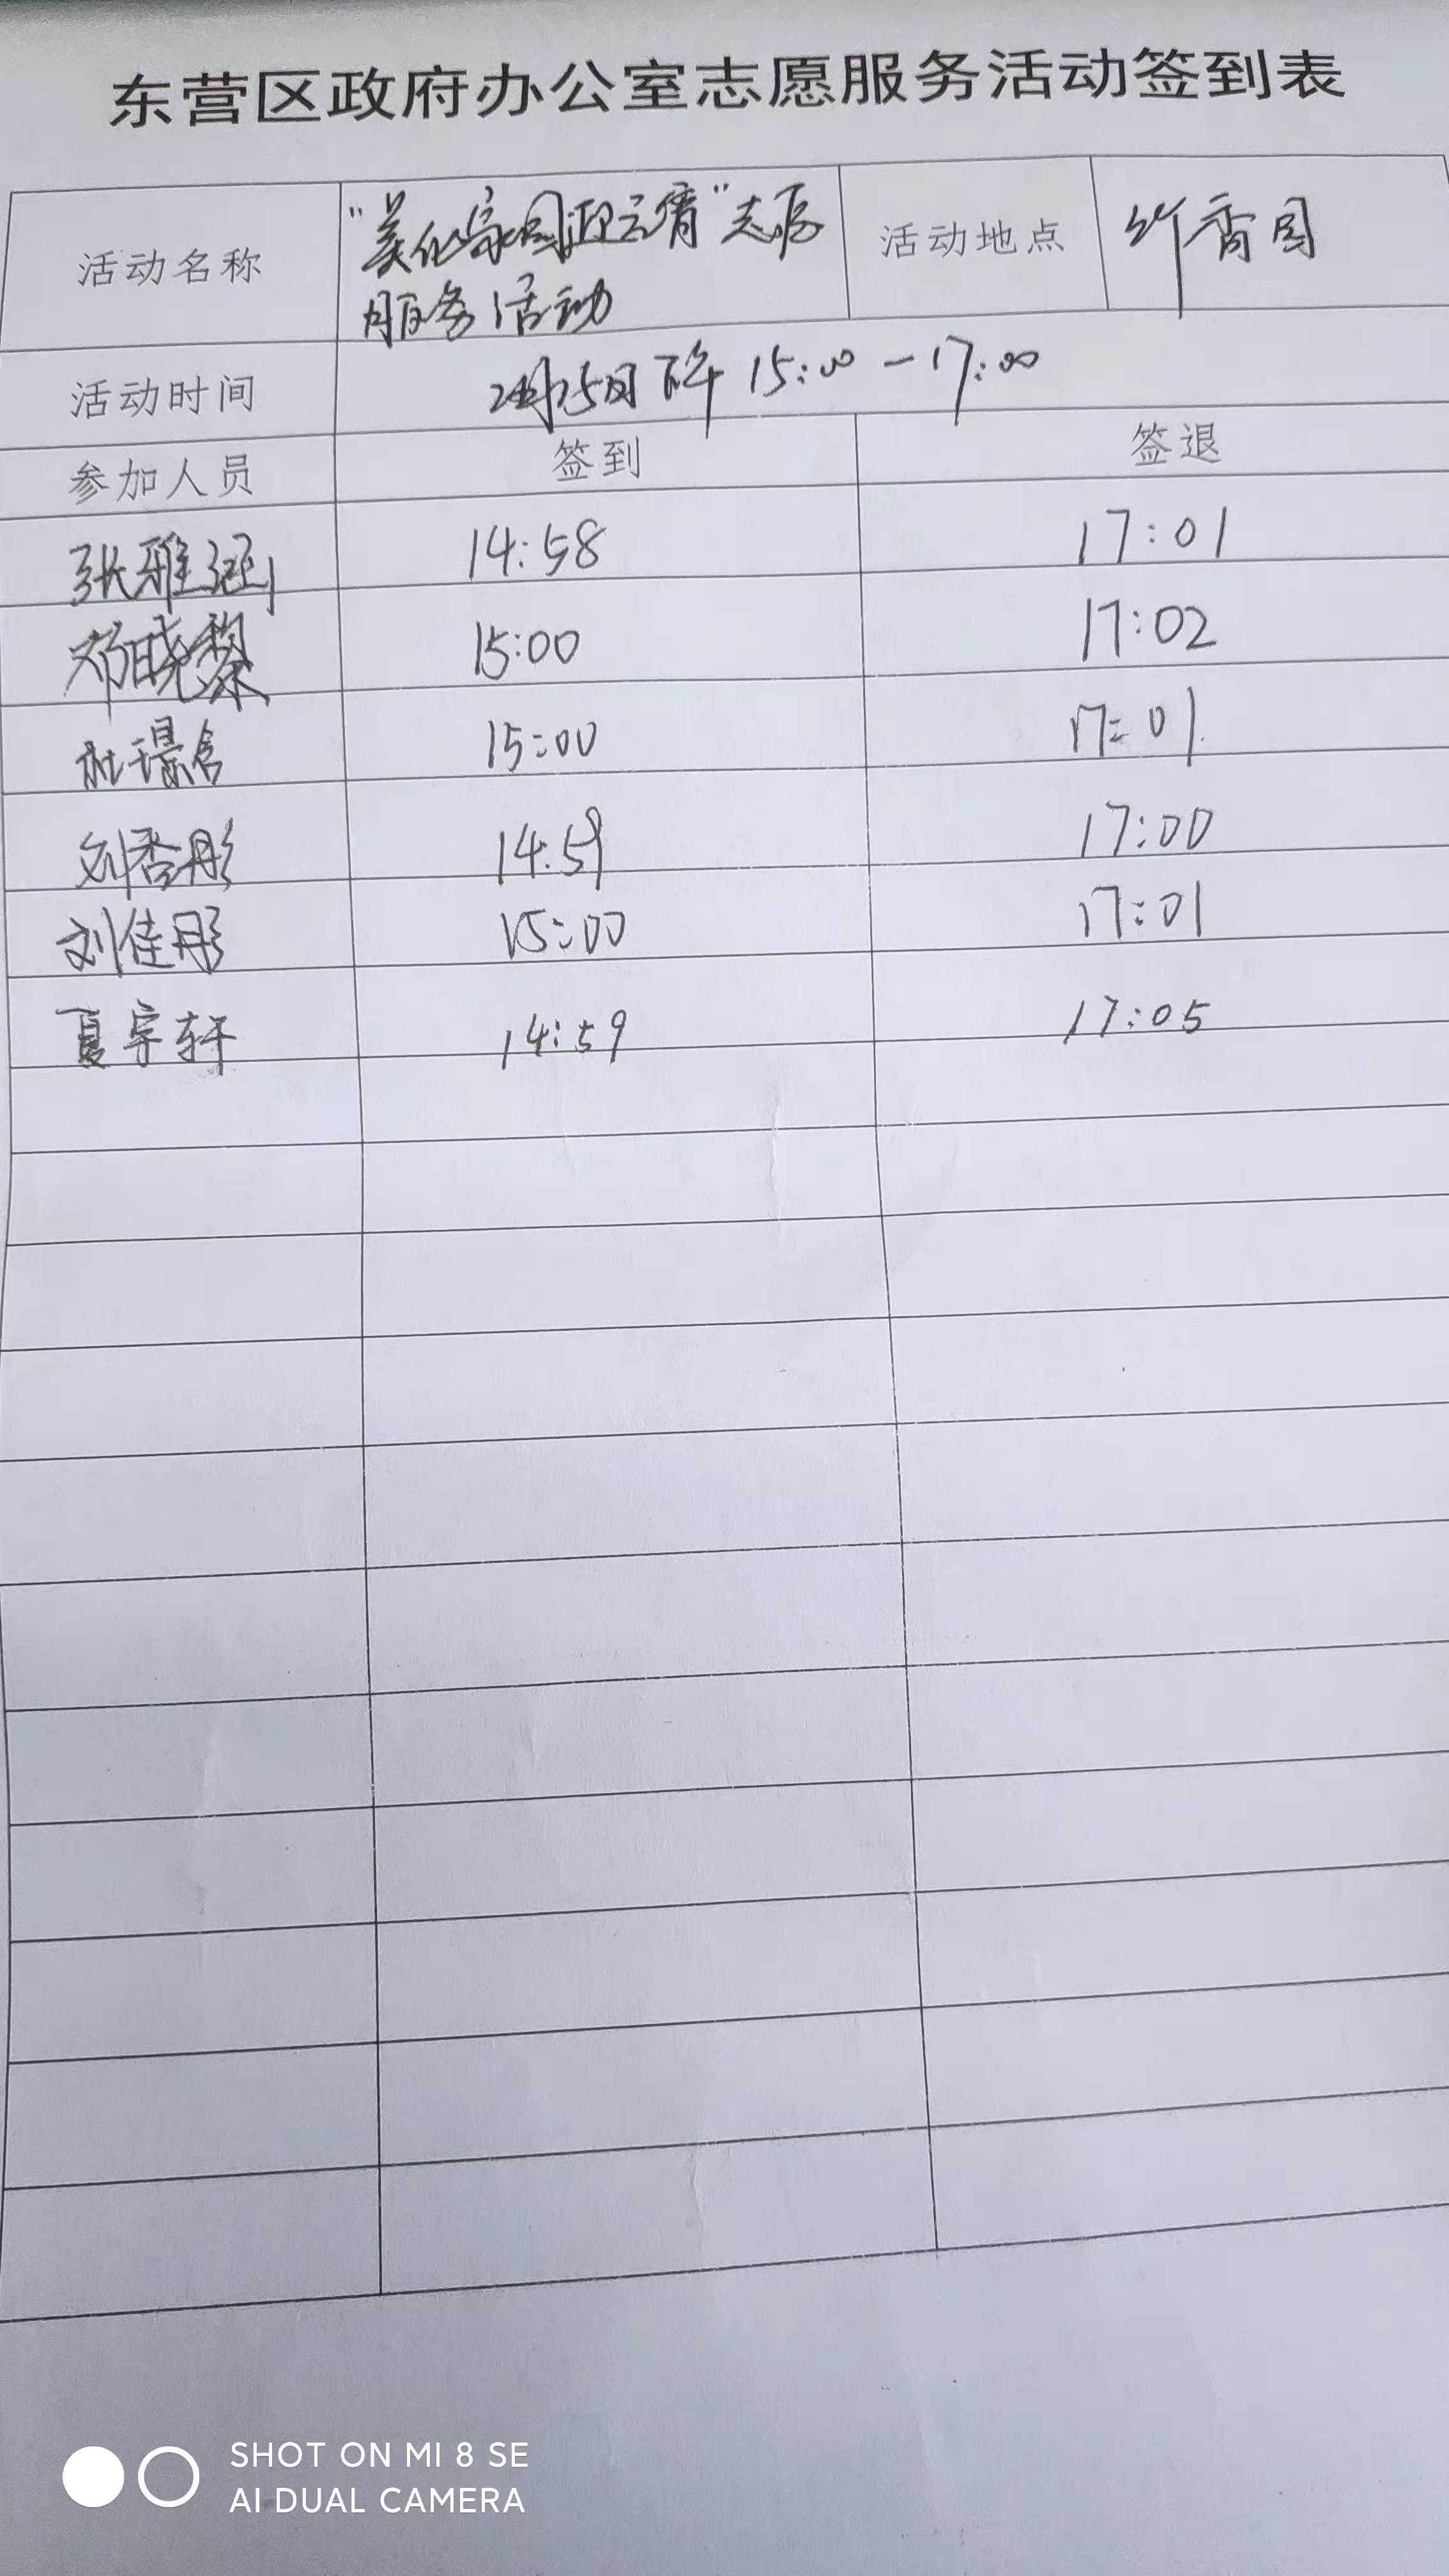 东营区政府办公室志愿服务活动签到表
活动名称 "美化家园迎元宵"志愿 活动地点 竹香园
服务活动
活动时间 2月25日下午 15:00-17:00
参加人员 签到 签退
张雅涵 14:58 17:01
邓晓黎 15:00 17:02
杜璟含 15:00 17:01
刘香彤 14:59 17:00
刘佳彤 15:00 17:01
夏宇轩 14:59 17:05
SHOT ON MI 8 SE
AI DUAL CAMERA